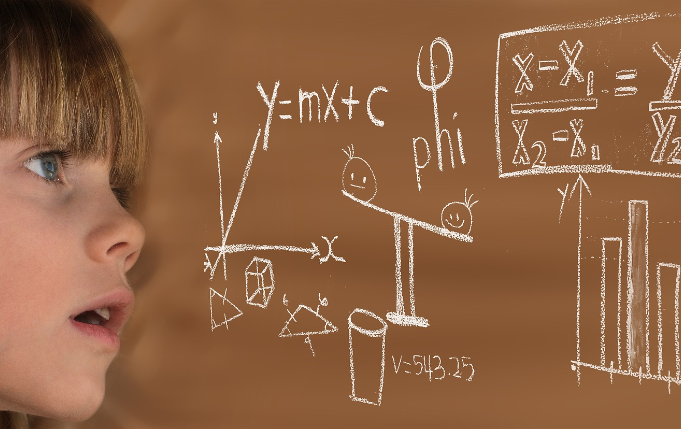 y
y=mx+c
x
φ
phi
x-x₁ = y
x₂-x₁ y₂
y
v=543.25